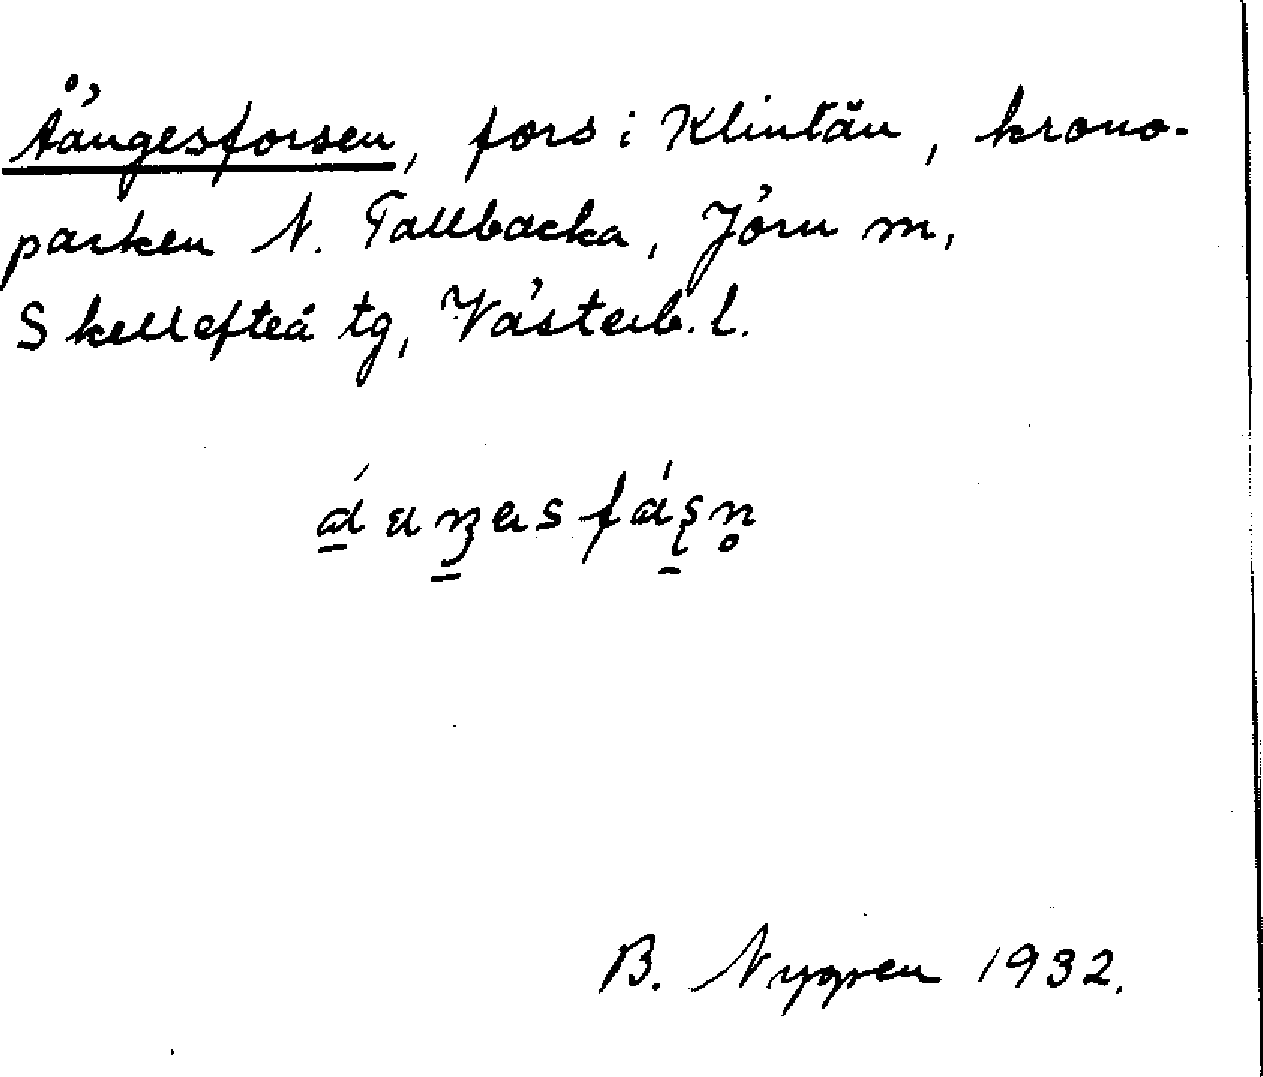 Åängesforsen, fors i Klintån, krono-
parken N. Tallbacka, Jörn m,
Skellefteå tg, Västerb. l.
B. Nygren 1932.